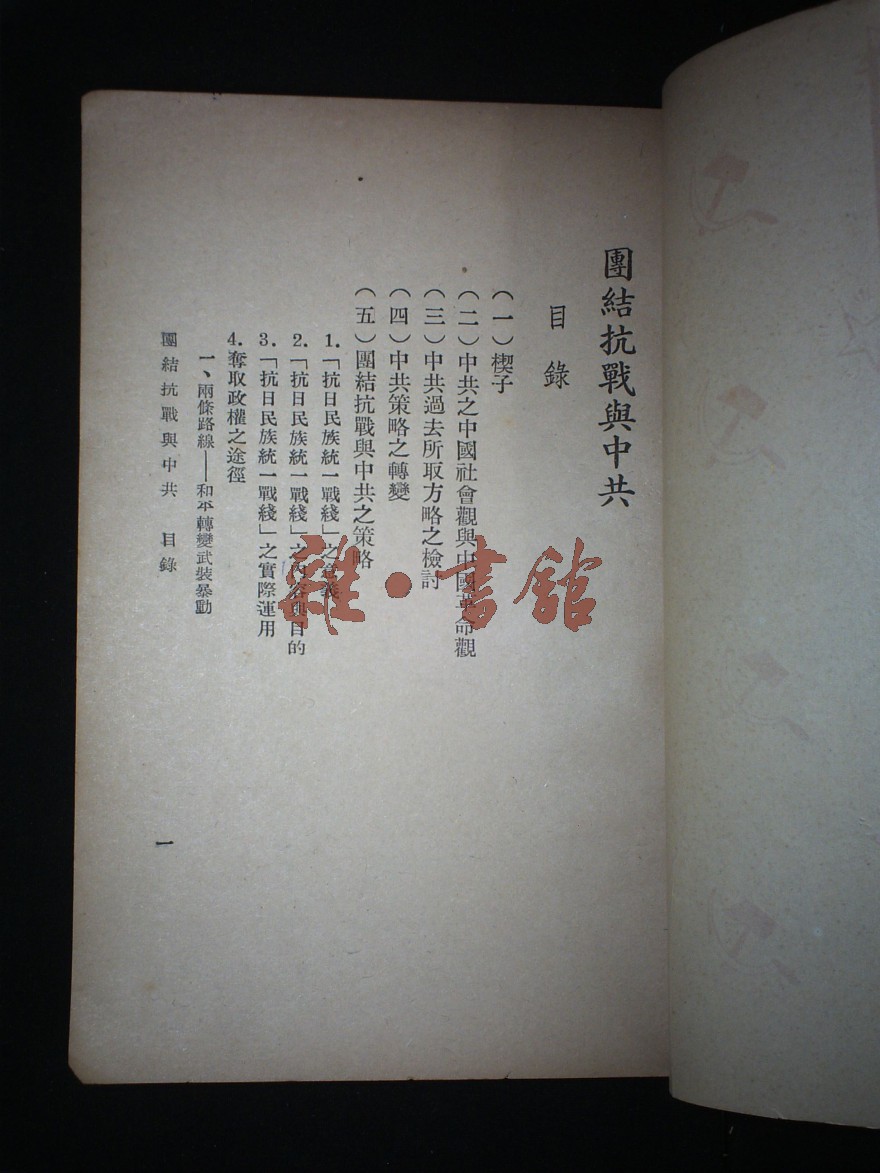 團結抗戰與中共
目錄
（一）楔子
（二）中共之中國社會觀與中國革命觀
（三）中共過去所取方略之檢討
（四）中共策略之轉變
（五）團結抗戰與中共之策略
1.「抗日民族統一戰綫」之意義
2.「抗日民族統一戰綫」之內容與目的
3.「抗日民族統一戰綫」之實際運用
4.奪取政權之途徑
一、兩條路線——和平轉變武裝暴動
團結抗戰與中共 目錄
一
雜·書館